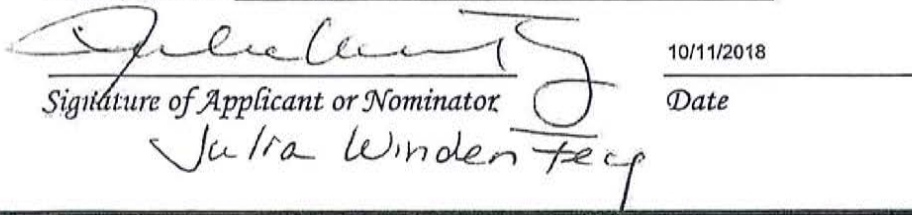 10/11/2018
Signature of Applicant or Nominator
Date
Julia Winden